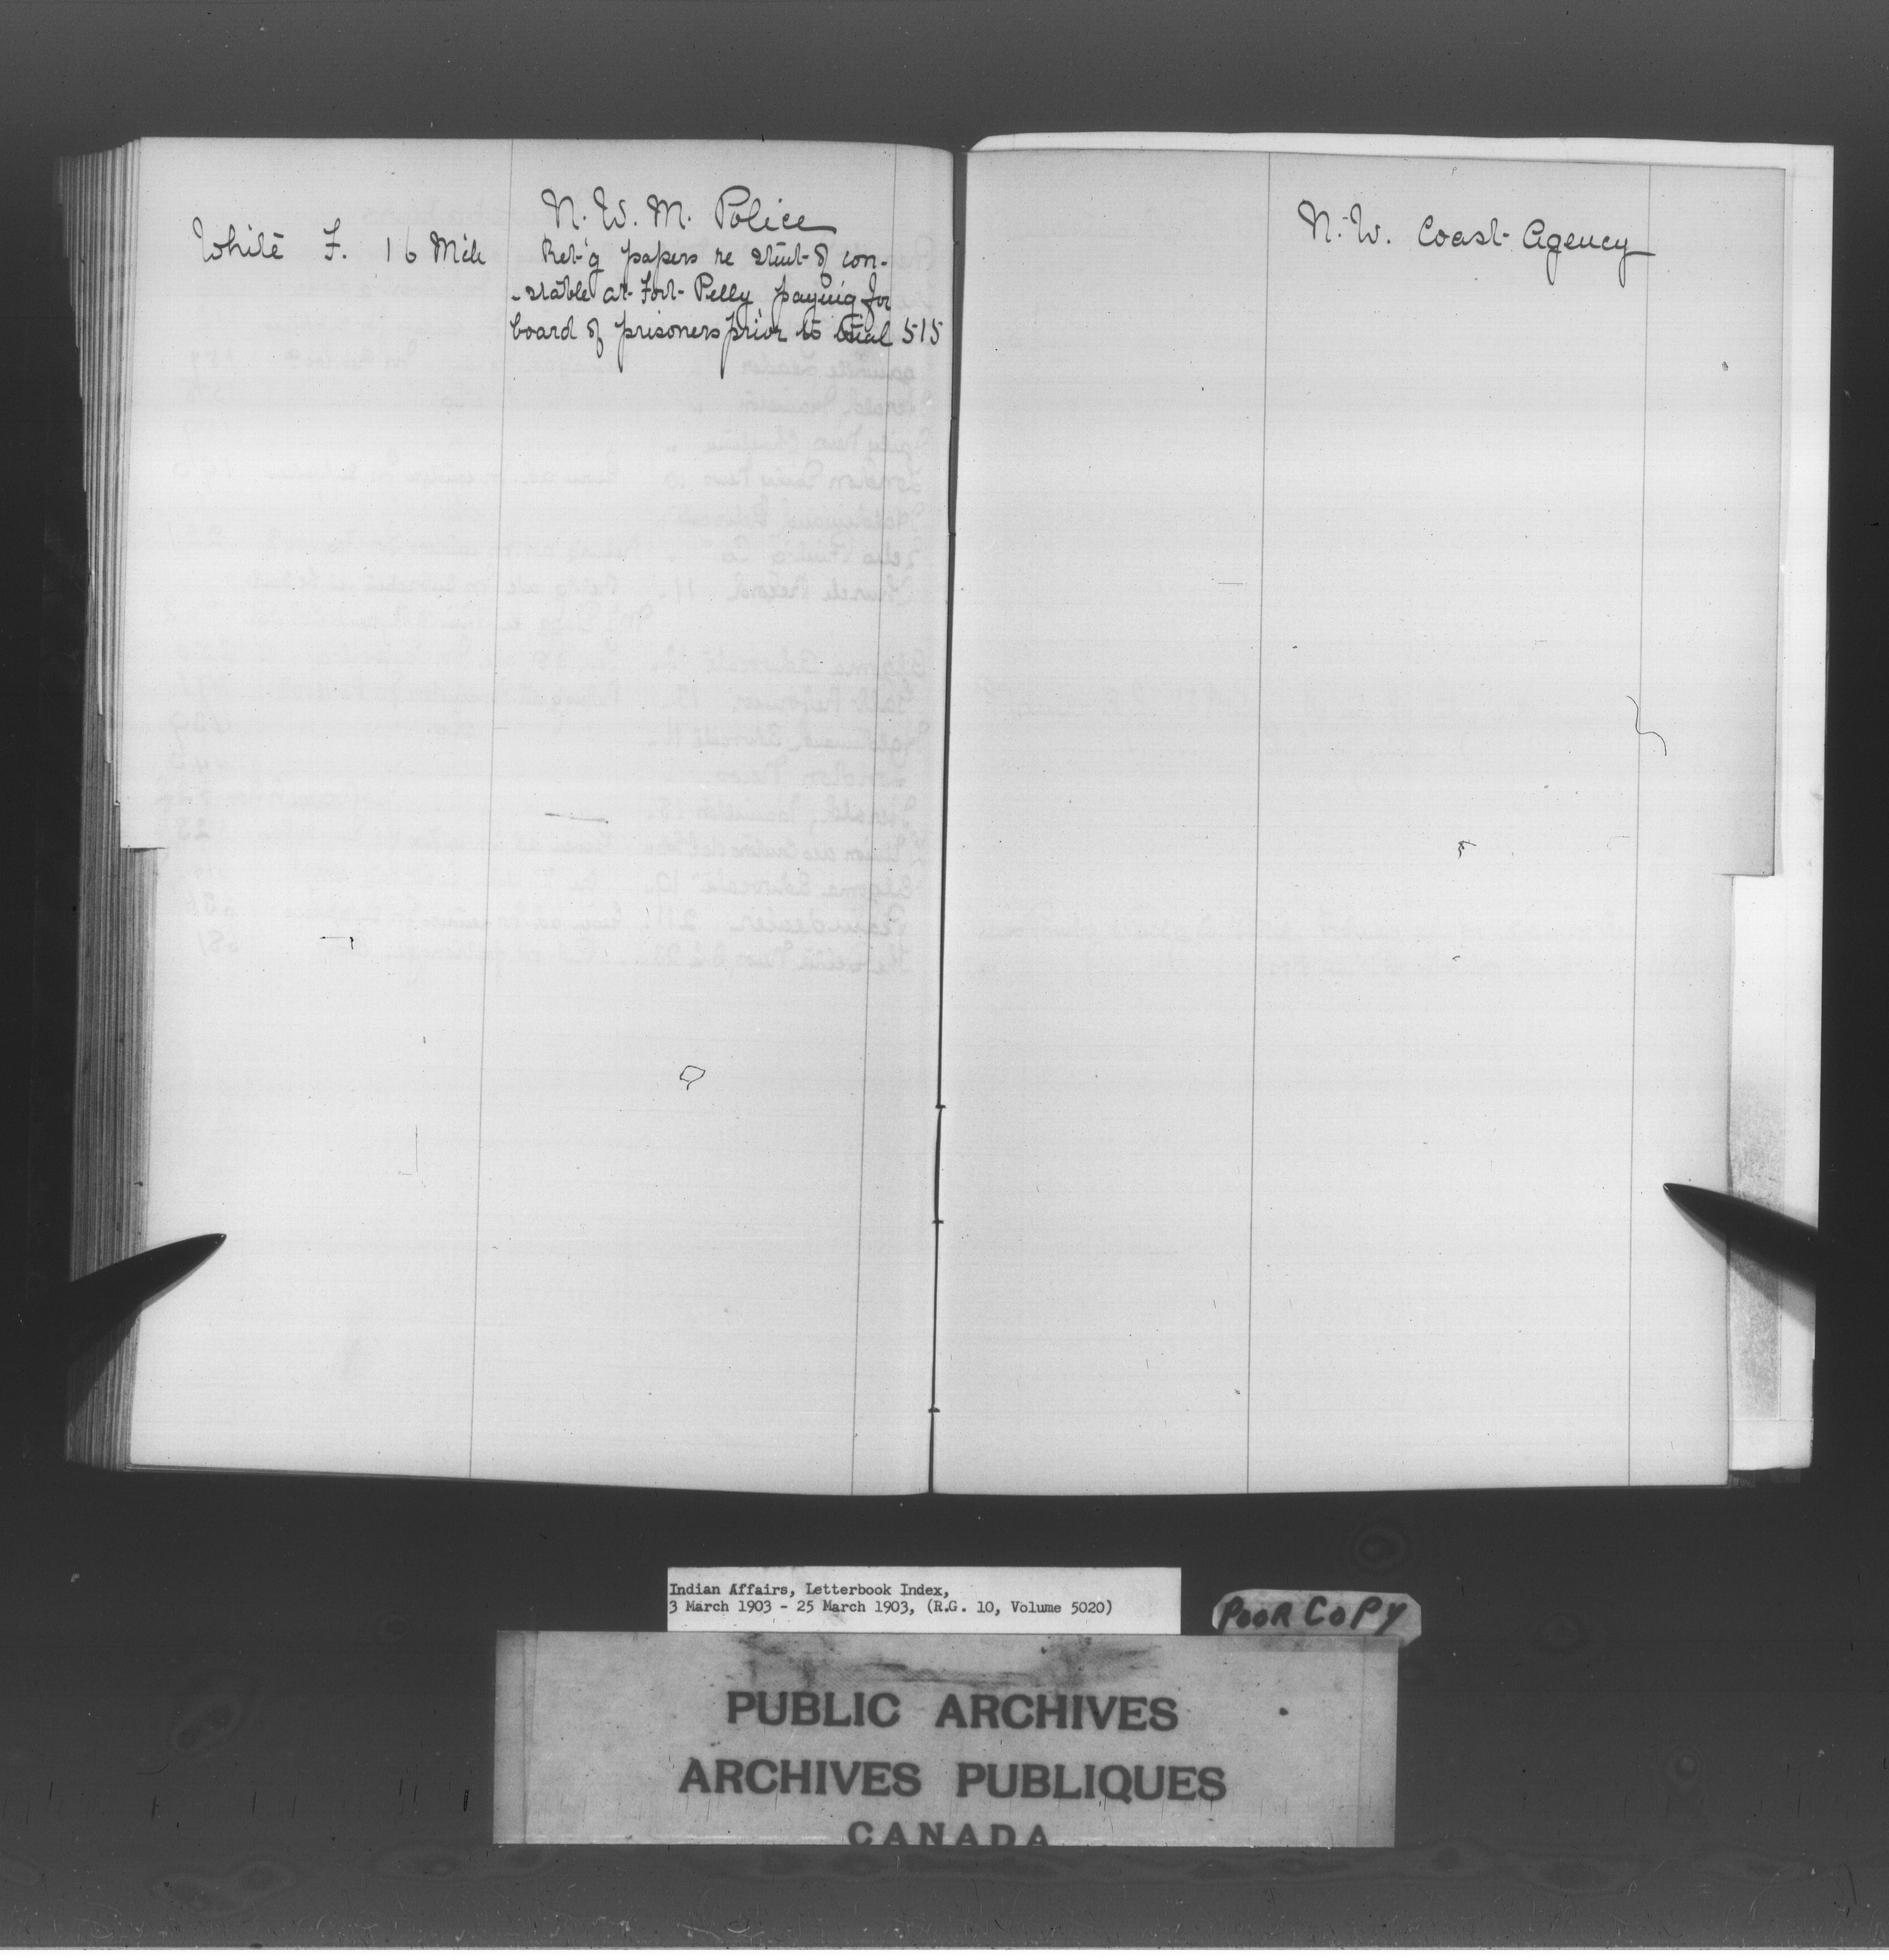 N. W. M. Police
White F. 16 Mch Ret'g papers re stmt of con-
-stable at Fort Pelly paying for
board of prisoners prior to trial 515
N. W. Coast Agency
Indian Affairs, Letterbook Index,
3 March 1903 - 25 March 1903, (R.G. 10, Volume 5020)
POOR COPY
PUBLIC ARCHIVES
ARCHIVES PUBLIQUES
CANADA